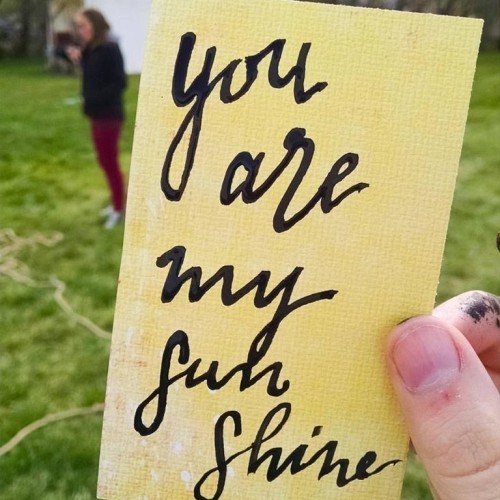 you
are
my
sun
shine